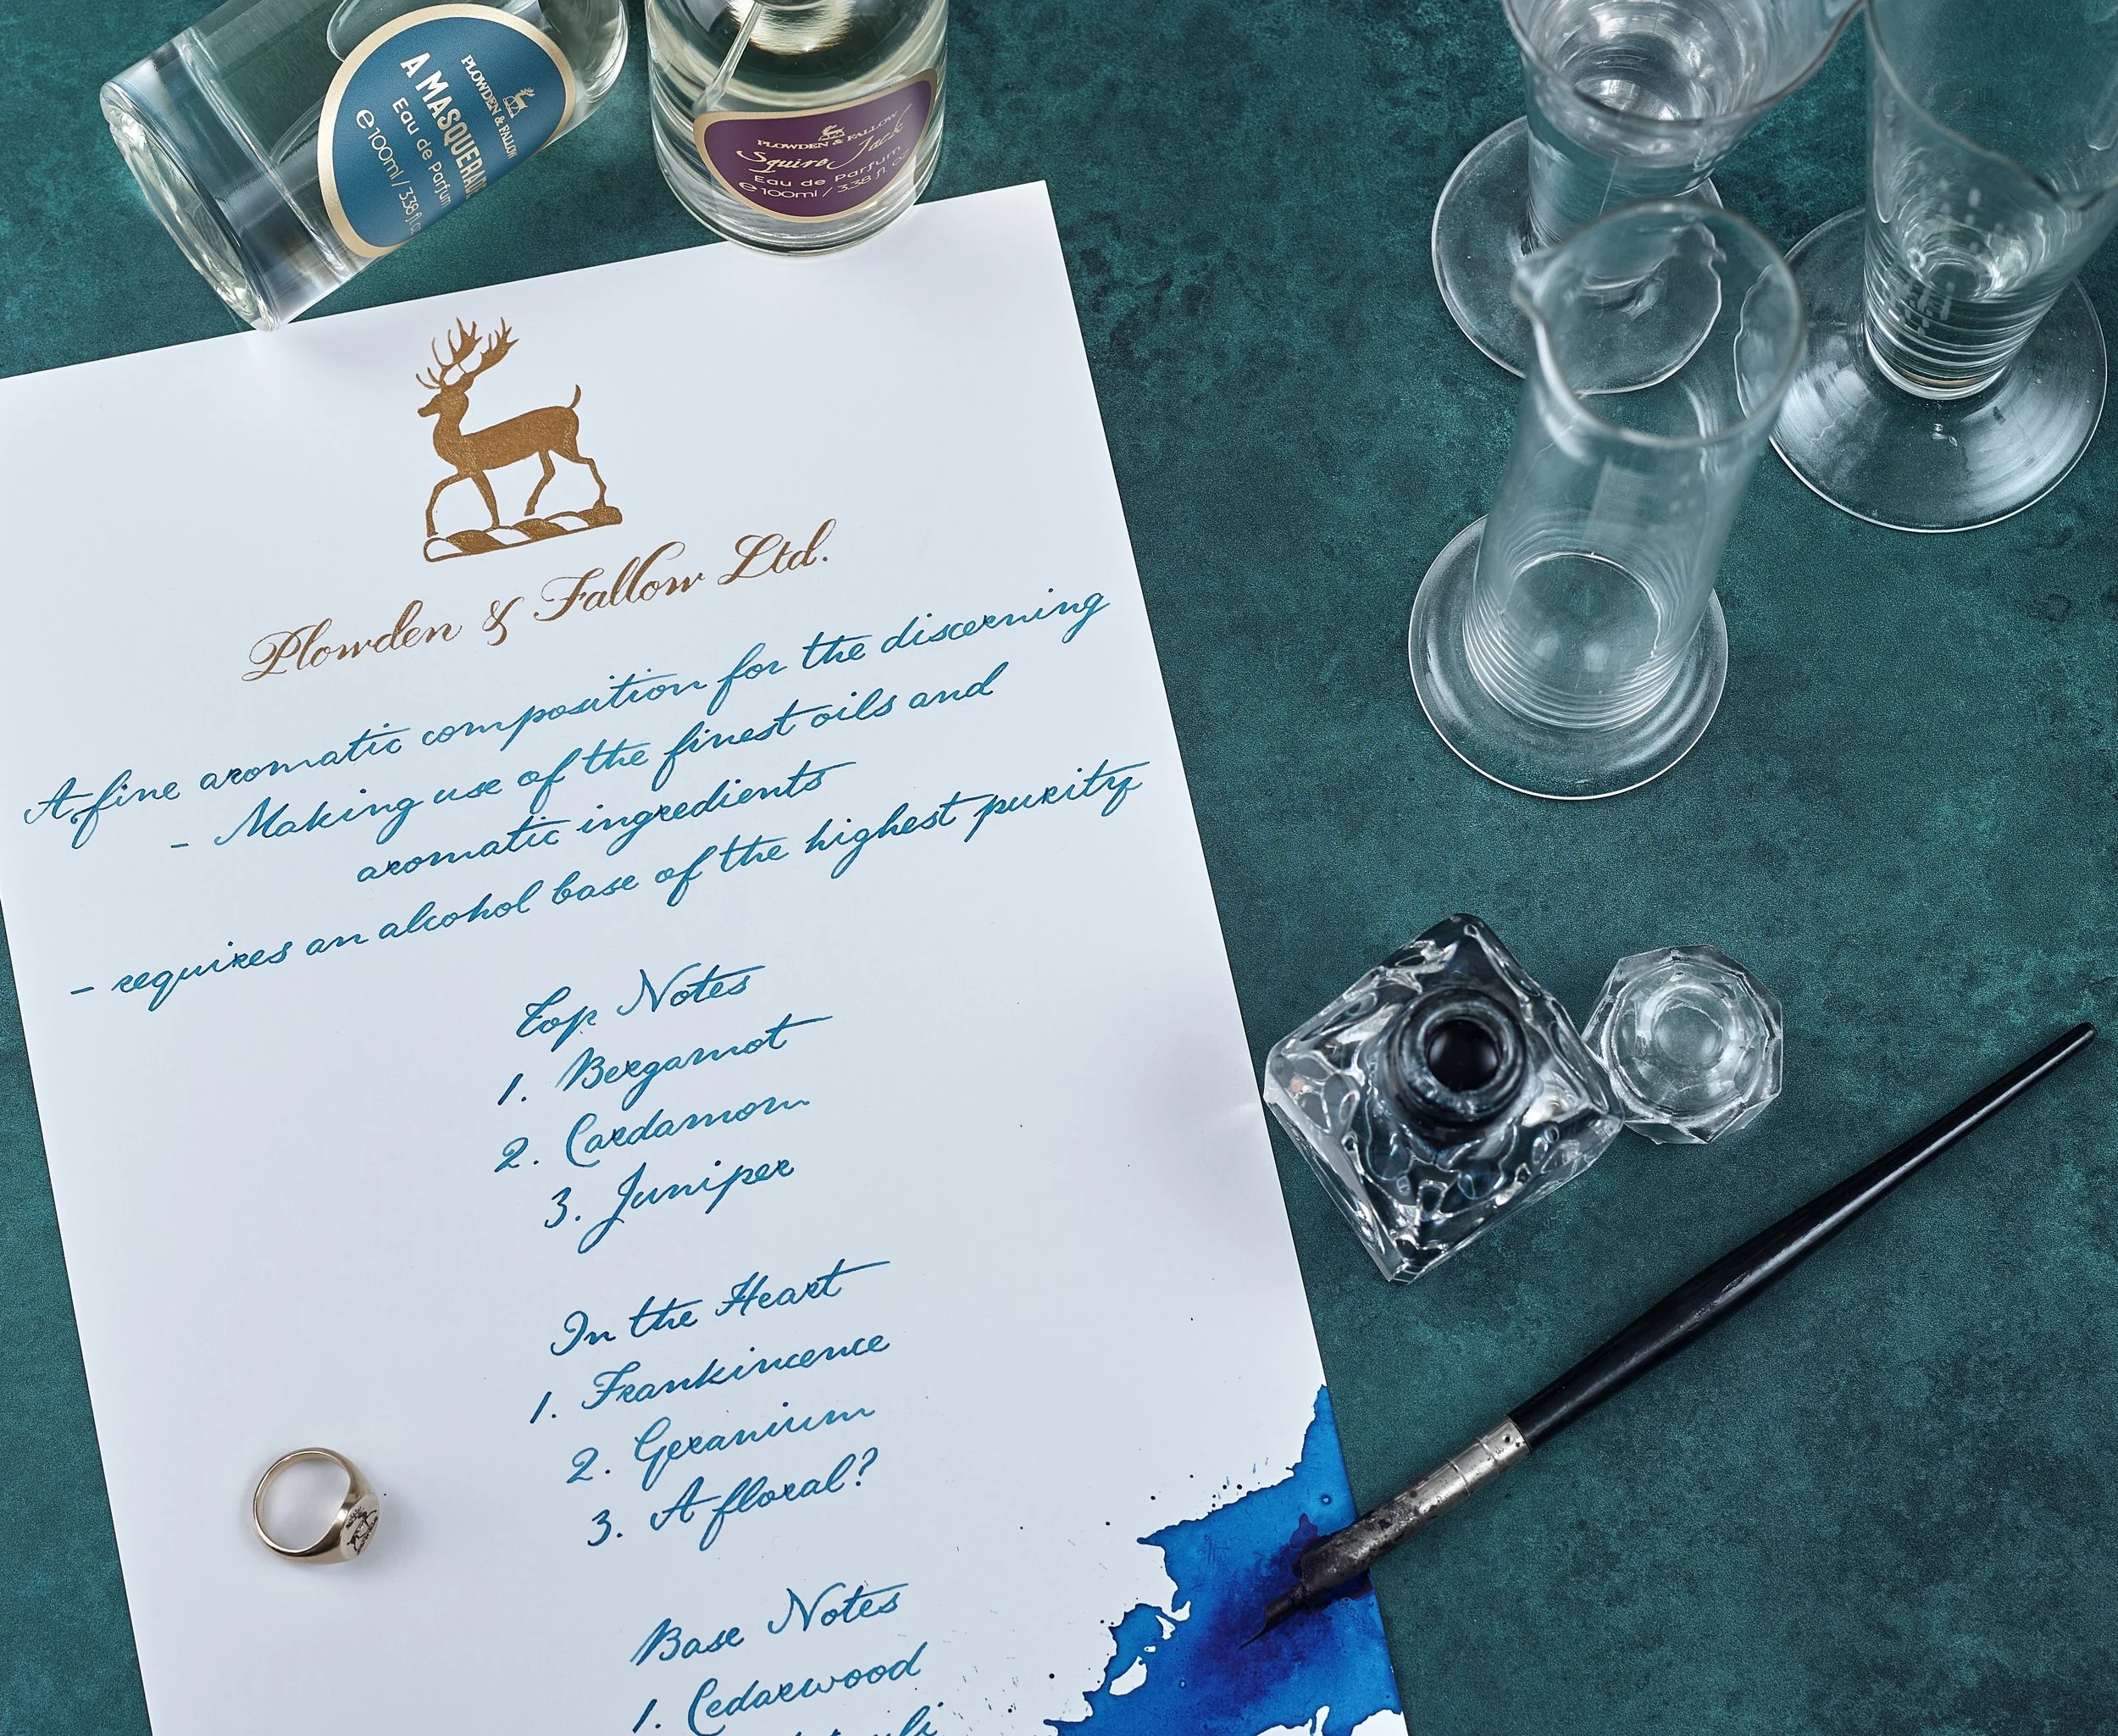 PLOWDEN & FALLOW
A MASQUERAD
Eau de Parfum
e 100ml / 3.38 fl. oz
PLOWDEN & FALLOW
Squire Jack
Eau de Parfum
e 100ml / 3.38 fl. oz
Plowden & Fallow Ltd.
A fine aromatic composition for the discerning
- Making use of the finest oils and
aromatic ingredients
- requires an alcohol base of the highest purity
Top Notes
1. Bergamot
2. Cardamom
3. Juniper
In the Heart
1. Frankincence
2. Geranium
3. A floral?
Base Notes
1. Cedarwood